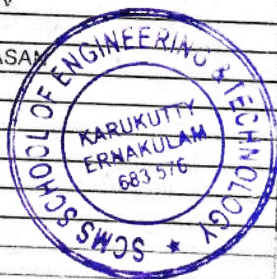 ASAN
SCMS SCHOOL OF ENGINEERING & TECHNOLOGY ★
KARUKUTTY
ERNAKULAM
683 576